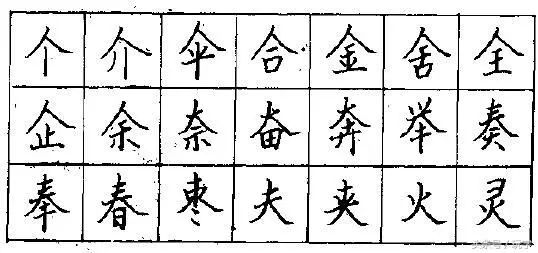 个介伞合金舍全
企余奈奋奔举奏
奉春枣夫夹火灵